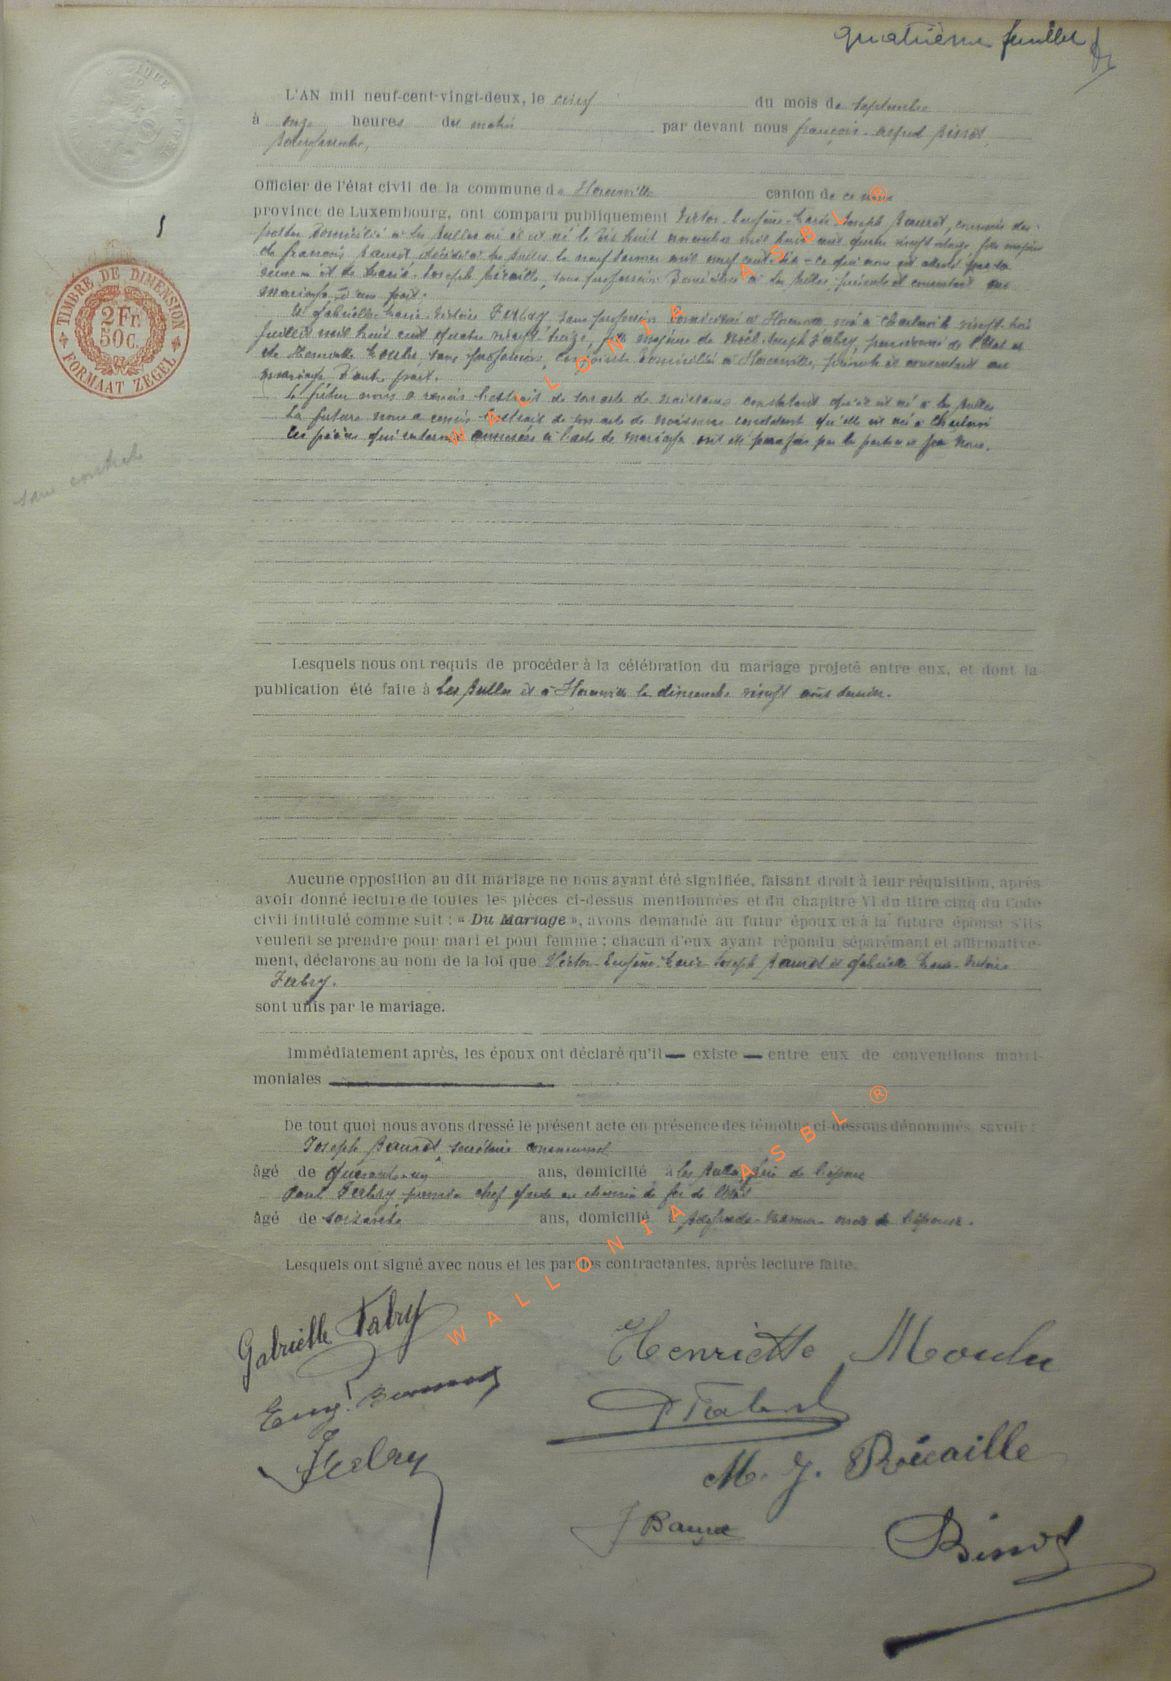 quatrième feuillet
BELGIQUE
L'AN mil neuf-cent-vingt-deux, le cinq du mois de septembre
à onze heures du matin par devant nous françois-alfred Binot,
bourgmestre,
Officier de l'état civil de la commune de Florenville canton de ce nom
province de Luxembourg, ont comparu publiquement Victor-Eugène-Marie-Joseph Baurot, commis des
postes domicilié à Les Bulles où il est né le dix huit novembre mil huit cent quatre vingt, fils majeur
de françois Baurot, décédé à Les Bulles le neuf mil neuf cent ce que nous est attesté par
et de Marie-Joseph Pécaille, sans profession domiciliée à Les Bulles présente et consentant au
mariage d'une part.
Et Gabrielle Marie-Victoire Fabry, sans profession domiciliée à Florenville née à Charleroi le vingt-trois
juillet mil huit cent quatre vingt treize, fille majeure de Noël-Joseph Fabry, pensionné de l'Etat et
de Henriette Moulu sans profession, conjoints domiciliés à Florenville, présents et consentant au
mariage d'autre part.
Le futur nous a remis l'extrait de son acte de naissance constatant qu'il est né à Les Bulles
La future nous a remis l'extrait de son acte de naissance constatant qu'elle est née à Charleroi
Les pièces qui annexées à l'acte de mariage ont été parafées par les parties et par nous.
TIMBRE DE DIMENSION
2 Fr.
50 C.
FORMAAT ZEGEL
sans contrat
Lesquels nous ont requis de procéder à la célébration du mariage projeté entre eux, et dont la
publication été faite à Les Bulles et à Florenville le dimanche vingt août dernier.
Aucune opposition au dit mariage ne nous ayant été signifiée, faisant droit à leur réquisition, après
avoir donné lecture de toutes les pièces ci-dessus mentionnées et du chapitre VI du titre cinq du Code
civil intitulé comme suit : « Du Mariage », avons demandé au futur époux et à la future épouse s'ils
veulent se prendre pour mari et pour femme ; chacun d'eux ayant répondu séparément et affirmative-
ment, déclarons au nom de la loi que Victor-Eugène-Marie Joseph Baurot et Gabrielle Marie-Victoire
Fabry.
sont unis par le mariage.
Immédiatement après, les époux ont déclaré qu'il — existe — entre eux de conventions matri-
moniales
De tout quoi nous avons dressé le présent acte en présence des témoins ci-dessous dénommés, savoir :
Joseph Baurot, secrétaire communal
âgé de quarante ans, domicilié à Les Bulles, frère de l'époux
Paul Fabry premier chef garde au chemin de fer de l'Etat
âgé de soixante ans, domicilié à oncle de l'épouse.
Lesquels ont signé avec nous et les parties contractantes, après lecture faite.
Gabrielle Fabry
Henriette Moulu
Eug. Baurot
P Fabry
Fabry
M. J. Pécaille
J Baurot
Binot
WALLONIA ASBL ®
WALLONIA ASBL ®